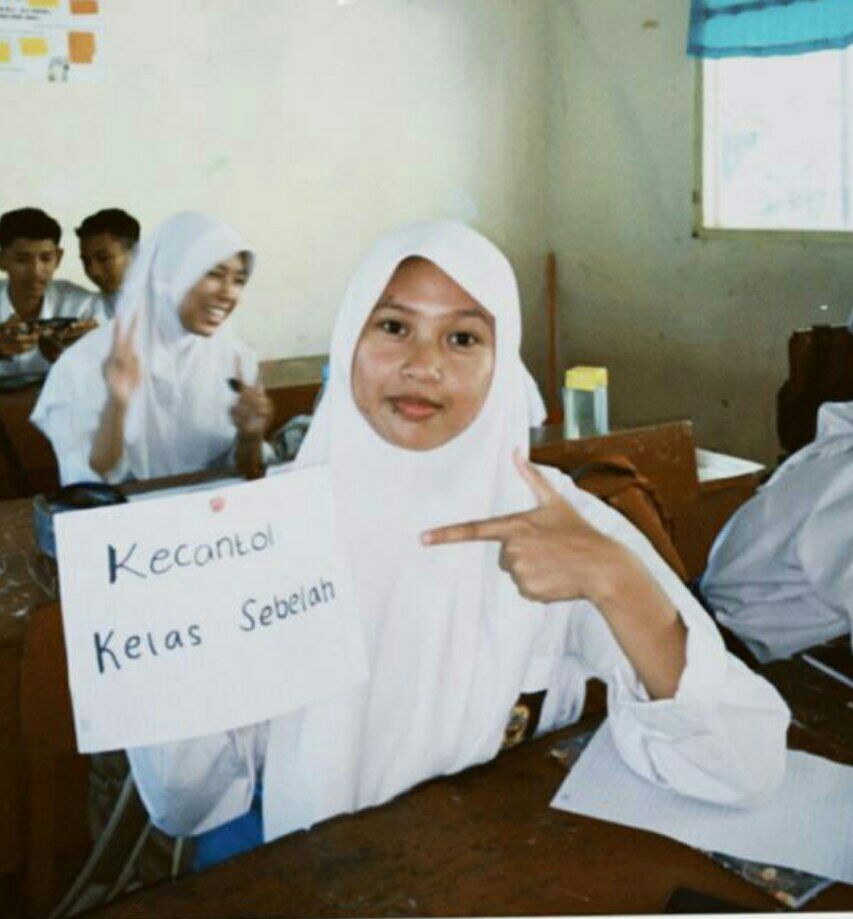 Kecantol
Kelas Sebelah